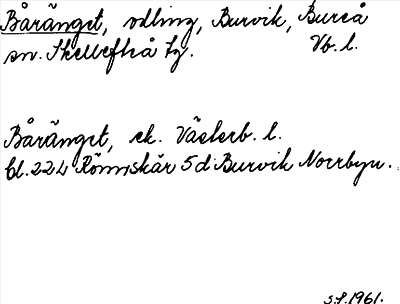 Båränget, odling, Burvik, Bureå
sn. Skellefteå tg. Vb. l.
Båränget, ek. Västerb. l.
bl. 224 Rönnskär 5 d Burvik Norrbyn.
S.S. 1961.